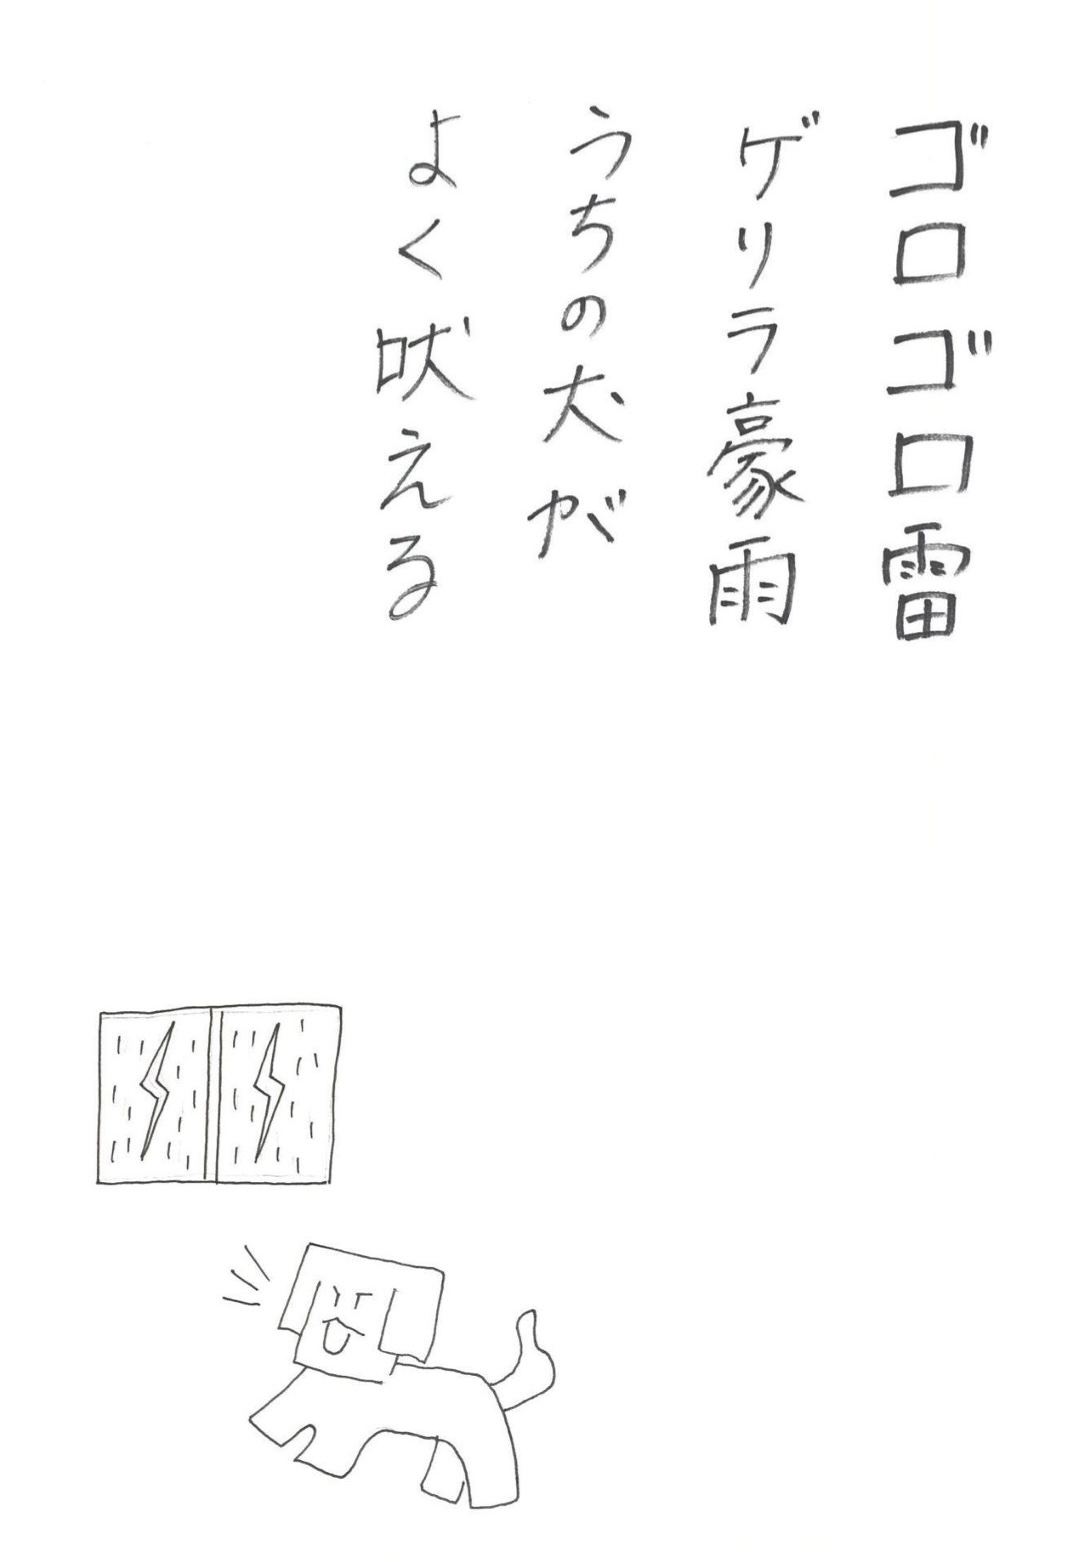 ゴロゴロ雷
ゲリラ豪雨
うちの犬が
よく吠える